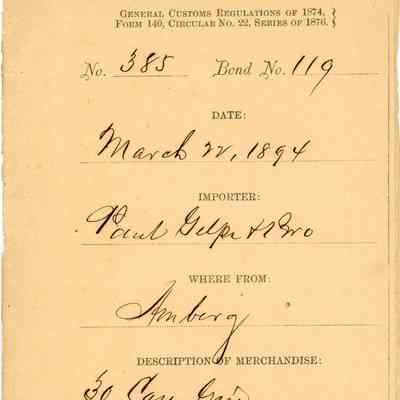 GENERAL CUSTOMS REGULATIONS OF 1874,
FORM 140, CIRCULAR NO. 22, SERIES OF 1876.
No. 385 Bond No. 119
DATE:
March 22, 1894
IMPORTER:
Paul Gelpi & Bro
WHERE FROM:
Amberg
DESCRIPTION OF MERCHANDISE:
30